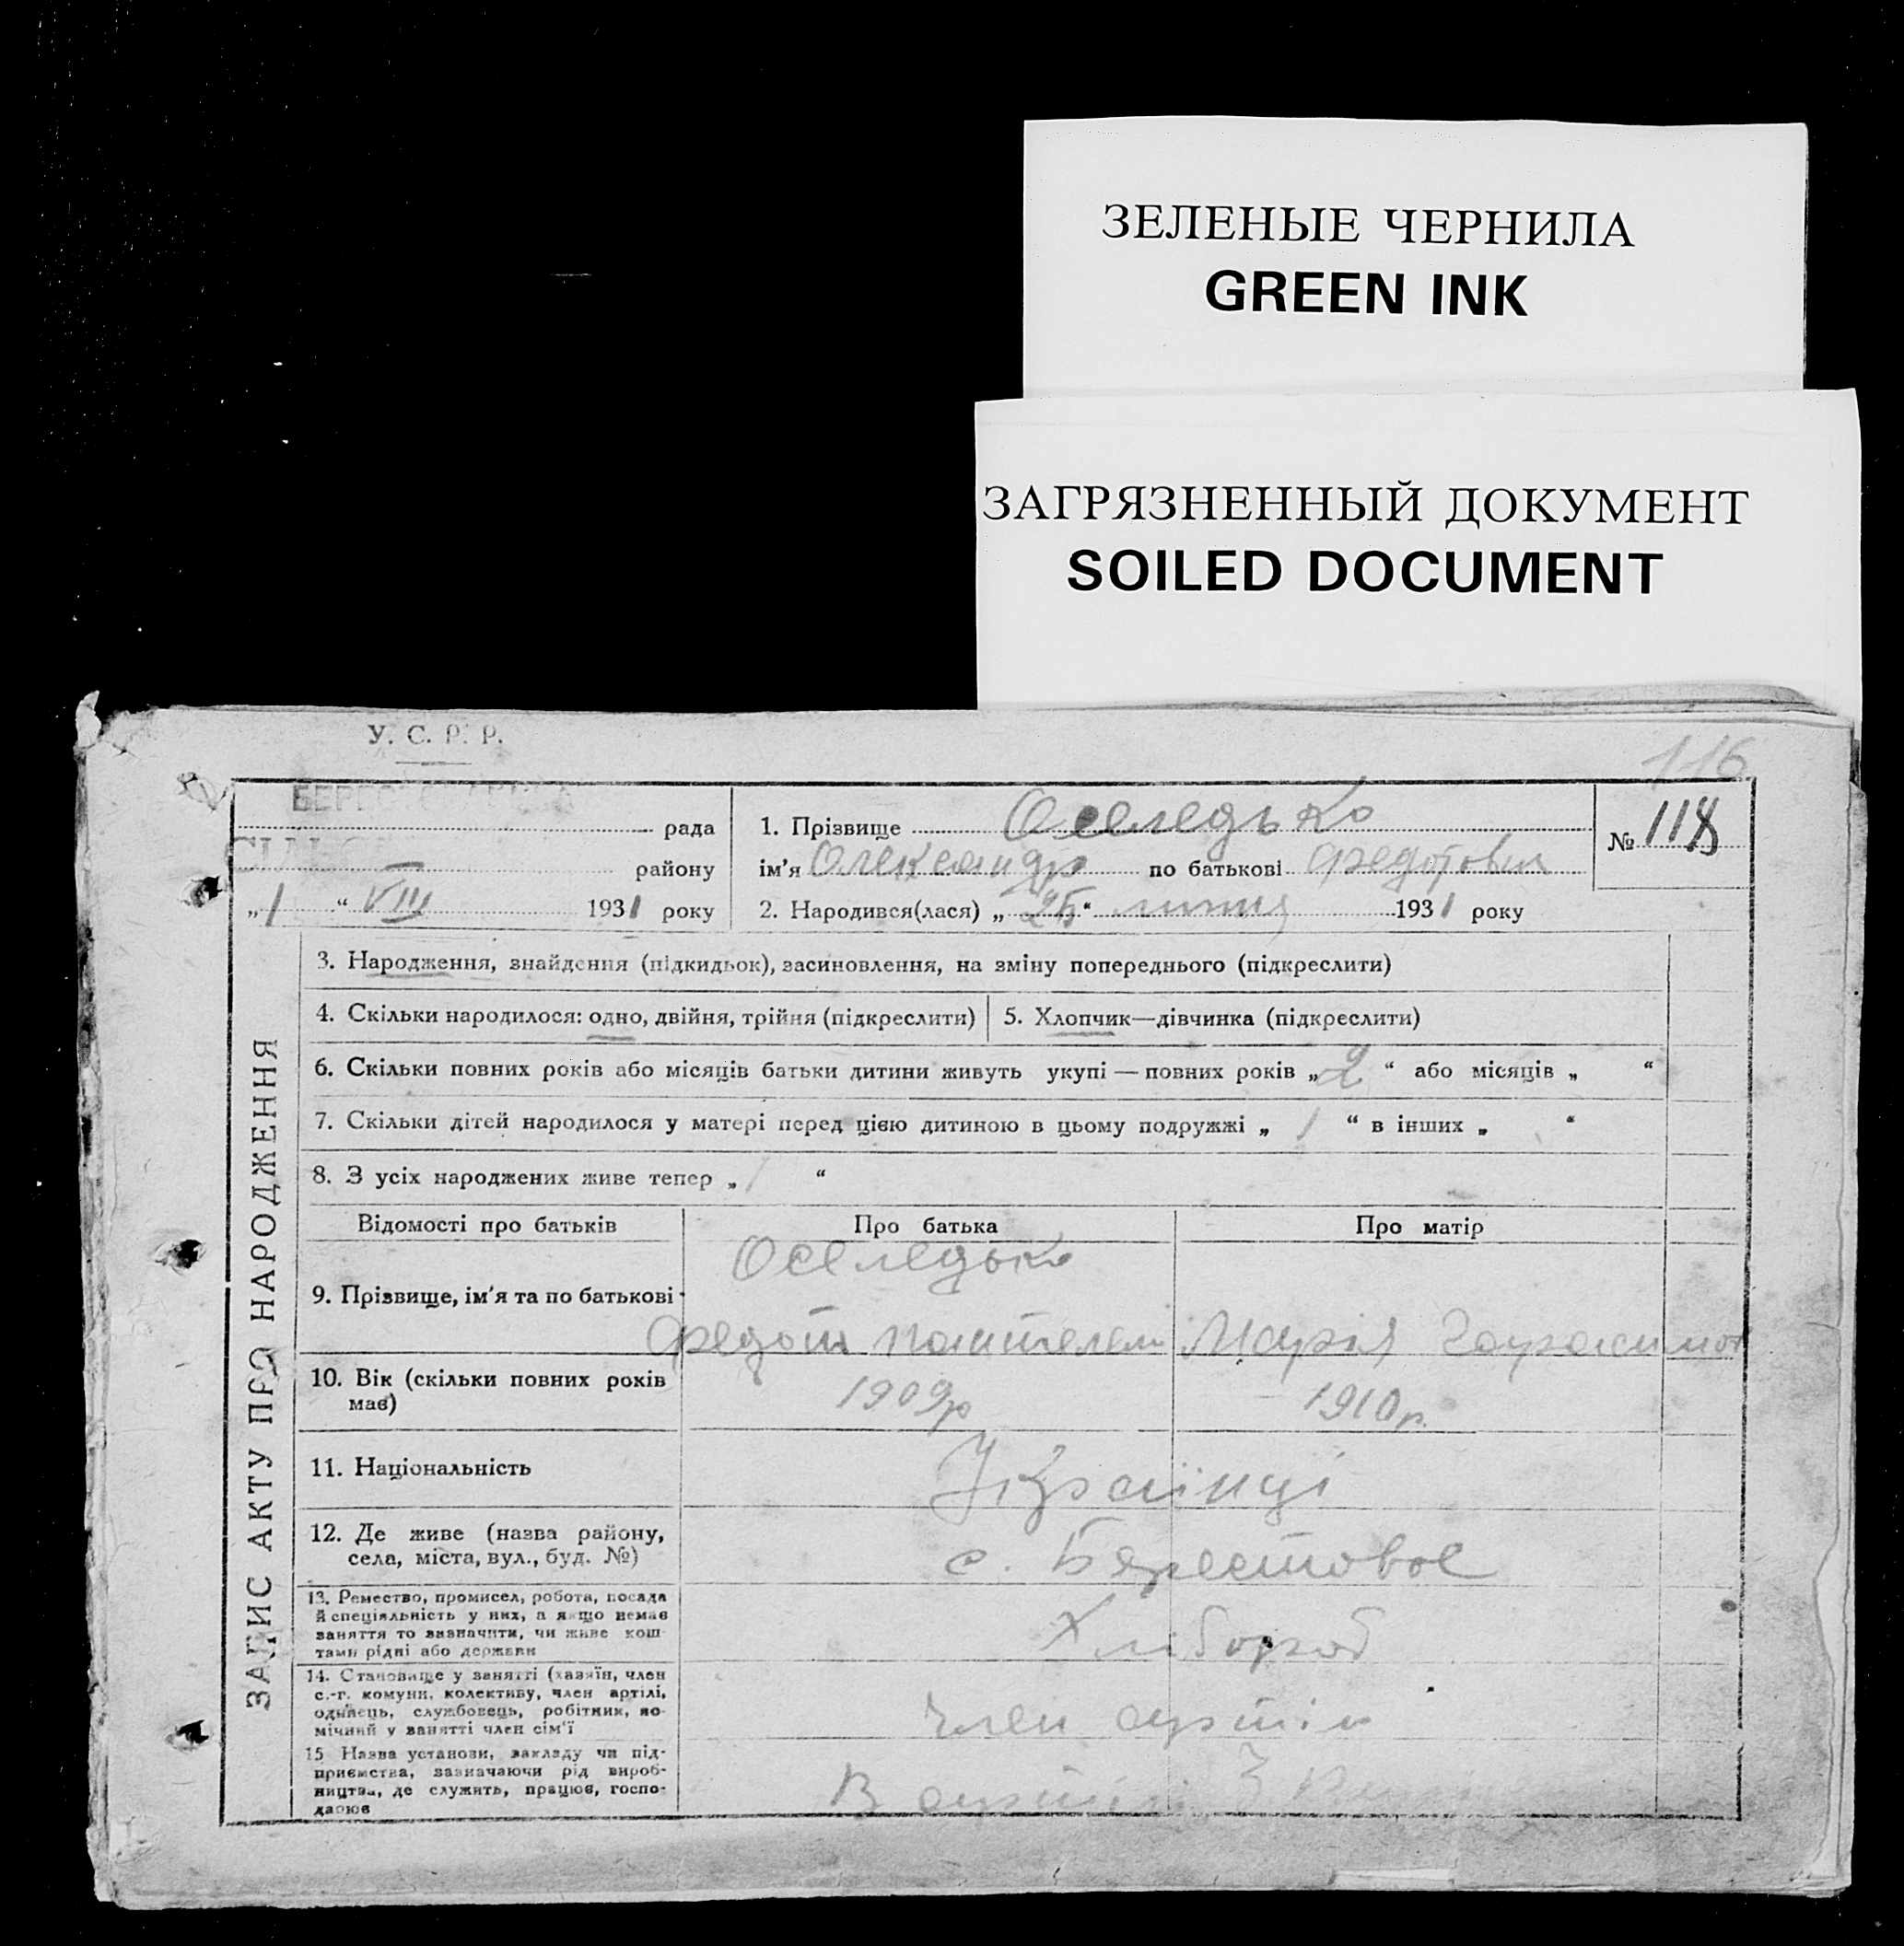 ЗЕЛЕНЫЕ ЧЕРНИЛА
GREEN INK
ЗАГРЯЗНЕННЫЙ ДОКУМЕНТ
SOILED DOCUMENT
У. С. Р. Р.
116
рада
1. Прізвище Оселедько
№ 118
району
ім'я Олександр по батькові Федотович
„1“ VIII 1931 року
2. Народився(лася) „25“ липня 1931 року
ЗАПИС АКТУ ПРО НАРОДЖЕННЯ
3. Народження, знайдення (підкидьок), засиновлення, на зміну попереднього (підкреслити)
4. Скільки народилося: одно, двійня, трійня (підкреслити)
5. Хлопчик—дівчинка (підкреслити)
6. Скільки повних років або місяців батьки дитини живуть укупі — повних років „2“ або місяців „ “
7. Скільки дітей народилося у матері перед цією дитиною в цьому подружжі „1“ в інших „ “
8. З усіх народжених живе тепер „1“
Відомості про батьків
Про батька
Про матір
9. Прізвище, ім'я та по батькові
Оселедько
Федот Пантелем
Марія
10. Вік (скільки повних років має)
1909р
1910р.
11. Національність
Українці
12. Де живе (назва району,
села, міста, вул., буд. №)
с. Берестовое
13. Ремество, промисел, робота, посада
й спеціяльність у них, а якщо немає
заняття то визначити, чи живе кош-
тами рідні або держави
Хлібороб
14. Становище у занятті (хазяїн, член
с.-г. комуни, колективу, член артілі,
одинець, службовець, робітник, по-
мічний у занятті член сім'ї
член артіли
15 Назва установи, закладу чи під-
приємства, зазначаючи рід вироб-
ництва, де служить, працює, госпо-
дарює
В артілі